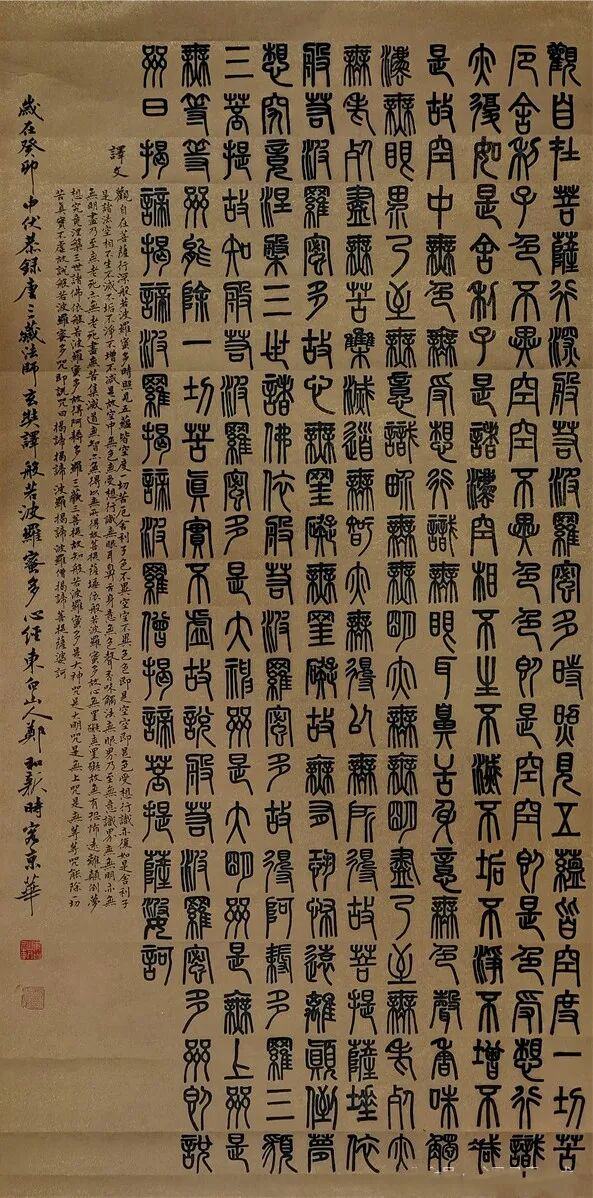 觀自在菩薩行深般若波羅蜜多時照見五蘊皆空度一切苦
厄舍利子色不異空空不異色色即是空空即是色受想行識
亦復如是舍利子是諸法空相不生不滅不垢不淨不增不減
是故空中無色無受想行識無眼耳鼻舌身意無色聲香味觸
法無眼界乃至無意識界無無明亦無無明盡乃至無老死亦
無老死盡無苦集滅道無智亦無得以無所得故菩提薩埵依
般若波羅蜜多故心無罣礙無罣礙故無有恐怖遠離顛倒夢
想究竟涅槃三世諸佛依般若波羅蜜多故得阿耨多羅三藐
三菩提故知般若波羅蜜多是大神咒是大明咒是無上咒是
無等等咒能除一切苦真實不虛故說般若波羅蜜多咒即說
咒曰揭諦揭諦波羅揭諦波羅僧揭諦菩提薩婆訶
譯文
觀自在菩薩行深般若波羅蜜多時照見五蘊皆空度一切苦厄舍利子色不異空空不異色色即是空空即是色受想行識亦復如是舍利子
是諸法空相不生不滅不垢不淨不增不減是故空中無色無受想行識無眼耳鼻舌身意無色聲香味觸法無眼界乃至無意識界無無明亦無
無明盡乃至無老死亦無老死盡無苦集滅道無智亦無得以無所得故菩提薩埵依般若波羅蜜多故心無罣礙無罣礙故無有恐怖遠離顛倒夢
想究竟涅槃三世諸佛依般若波羅蜜多故得阿耨多羅三藐三菩提故知般若波羅蜜多是大神咒是大明咒是無上咒是無等等咒能除一切
苦真實不虛故說般若波羅蜜多咒即說咒曰揭諦揭諦波羅揭諦波羅僧揭諦菩提薩婆訶
歲在癸卯中伏恭錄唐三藏法師玄奘譯般若波羅蜜多心經東白山人鄭和新時客京華